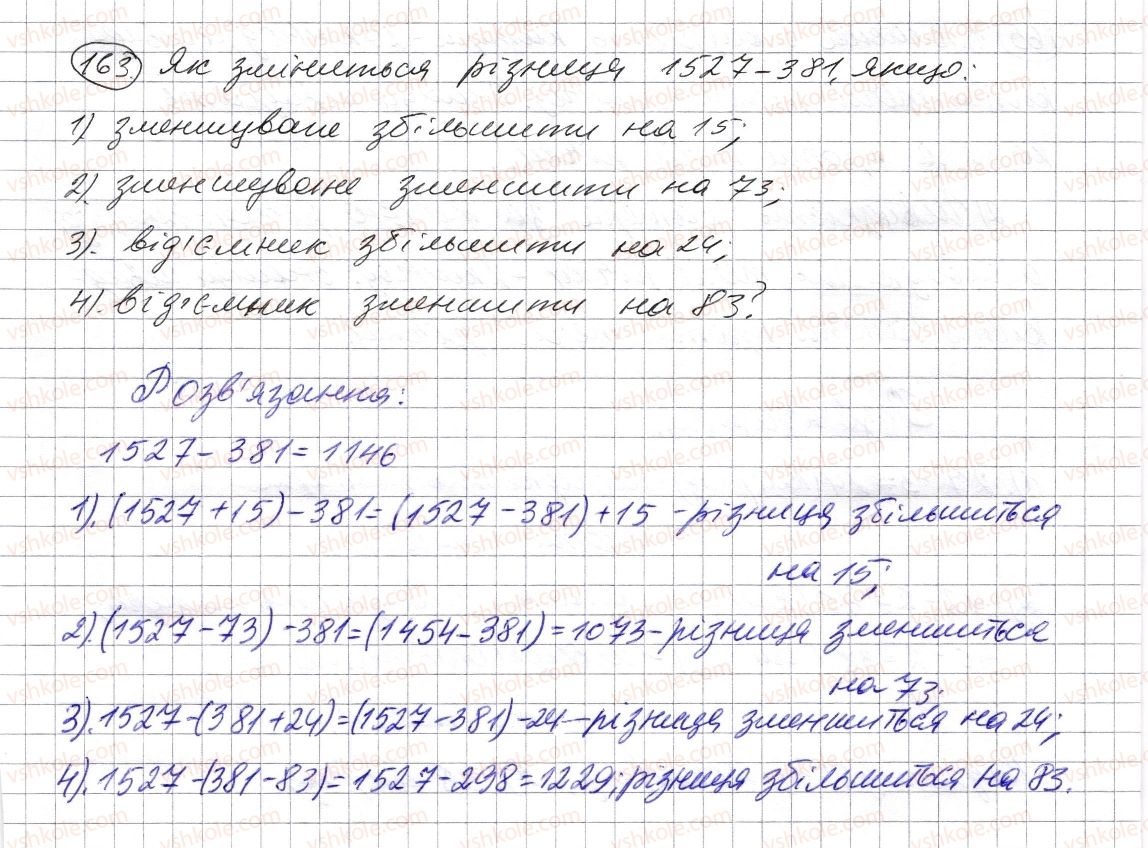 163. Як зміниться різниця 1527-381, якщо:
1) зменшуване збільшити на 15;
2). зменшуване зменшити на 73;
3). від'ємник збільшити на 24;
4). від'ємник зменшити на 83?
Розв'язання:
1527-381=1146
1).(1527+15)-381=(1527-381)+15 -різниця збільшиться
на 15;
2).(1527-73)-381=(1454-381)=1073-різниця зменшиться
на 73;
3).1527-(381+24)=(1527-381)-24-різниця зменшиться на 24;
4).1527-(381-83)=1527-298=1229; різниця збільшиться на 83.